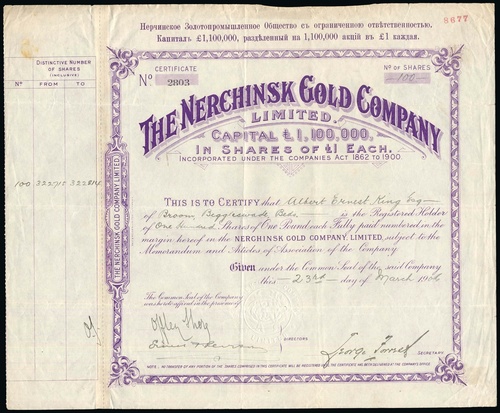 Нерчинское Золотопромышленное Общество съ ограниченною отвѣтственностью.
Капиталъ £1,100,000, раздѣленный на 1,100,000 акцій въ £1 каждая.
8677
DISTINCTIVE NUMBER
OF SHARES
(INCLUSIVE)
No FROM TO
100 322715 322814
CERTIFICATE
No 2803
No OF SHARES
100
THE NERCHINSK GOLD COMPANY
LIMITED.
CAPITAL £1,100,000.
IN SHARES OF £1 EACH.
INCORPORATED UNDER THE COMPANIES ACT 1862 TO 1900.
THE NERCHINSK GOLD COMPANY LIMITED.
THIS IS TO CERTIFY that Albert Ernest King Esq
of Broom, Biggleswade, Beds. is the Registered Holder
of One hundred Shares of One Pound each Fully paid numbered in the
margin hereof in the NERCHINSK GOLD COMPANY, LIMITED, subject to the
Memorandum and Articles of Association of the Company.
Given under the Common Seal of the said Company
this 23rd day of March 1906
The Common Seal of the Company
was hereto affixed in the presence of
DIRECTORS
George
SECRETARY
NOTE: NO TRANSFER OF ANY PORTION OF THE SHARES COMPRISED IN THIS CERTIFICATE WILL BE REGISTERED UNTIL THE CERTIFICATE HAS BEEN DEPOSITED AT THE COMPANY'S OFFICE.